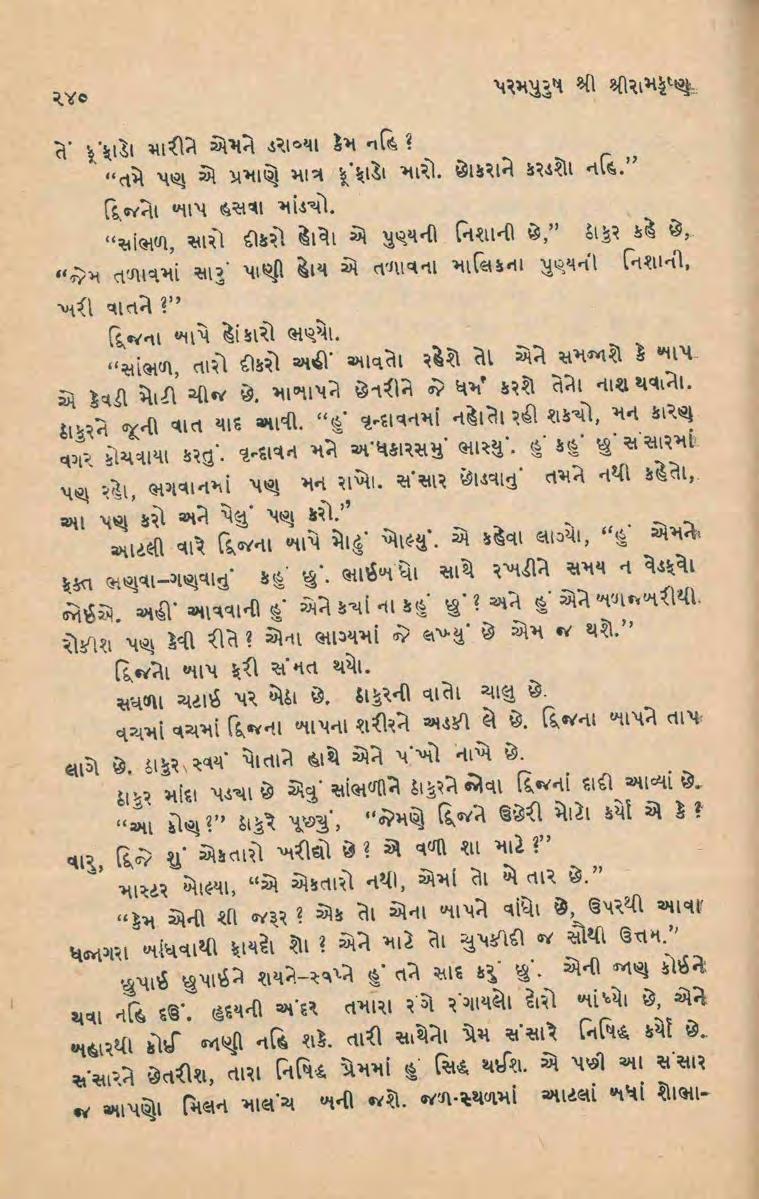 ૨૪૦
પરમપુરુષ શ્રી શ્રીરામકૃષ્ણ
તેં ફૂંફાડો મારીને એમને ડરાવ્યા કેમ નહિ ?
“તમે પણ એ પ્રમાણે માત્ર ફૂંફાડો મારો. છોકરાને કરડશો નહિ.”
દ્વિજનો બાપ હસવા માંડ્યો.
“સાંભળ, સારો દીકરો હોવો એ પુણ્યની નિશાની છે,” ઠાકુર કહે છે,
“જેમ તળાવમાં સારું પાણી હોય એ તળાવના માલિકના પુણ્યની નિશાની,
ખરી વાતને ?”
દ્વિજના બાપે હોંકારો ભણ્યો.
“સાંભળ, તારો દીકરો અહીં આવતો રહેશે તો એને સમજાશે કે બાપ
એ કેવડી મોટી ચીજ છે. માબાપને છેતરીને જે ધર્મ કરશે તેનો નાશ થવાનો.
ઠાકુરને જૂની વાત યાદ આવી. “હું વૃન્દાવનમાં નહોતો રહી શક્યો, મન કારણ
વગર કોચવાયા કરતું. વૃન્દાવન મને અંધકારસમું ભાસ્યું. હું કહું છું સંસારમાં
પણ રહો, ભગવાનમાં પણ મન રાખો. સંસાર છોડવાનું તમને નથી કહેતો,
આ પણ કરો અને પેલું પણ કરો.”
આટલી વારે દ્વિજના બાપે મોઢું ખોલ્યું. એ કહેવા લાગ્યો, “હું એમને
ફક્ત ભણવા–ગણવાનું કહું છું. ભાઈબંધો સાથે રખડીને સમય ન વેડફવો
જોઈએ. અહીં આવવાની હું એને ક્યાં ના કહું છું ? અને હું એને બળજબરીથી
રોકીશ પણ કેવી રીતે ? એના ભાગ્યમાં જે લખ્યું છે એમ જ થશે.”
દ્વિજનો બાપ ફરી સંમત થયો.
સઘળા ચટાઈ પર બેઠા છે. ઠાકુરની વાતો ચાલુ છે.
વચમાં વચમાં દ્વિજના બાપના શરીરને અડકી લે છે. દ્વિજના બાપને તાપ
લાગે છે. ઠાકુર સ્વયં પોતાને હાથે એને પંખો નાખે છે.
ઠાકુર માંદા પડ્યા છે એવું સાંભળીને ઠાકુરને જોવા દ્વિજનાં દાદી આવ્યાં છે.
“આ કોણ ?” ઠાકુરે પૂછ્યું, “જેમણે દ્વિજને ઉછેરી મોટો કર્યો એ કે ?
વારુ, દ્વિજે શું એકતારો ખરીદ્યો છે ? એ વળી શા માટે ?”
માસ્ટર બોલ્યા, “એ એકતારો નથી, એમાં તો બે તાર છે.”
“કેમ એની શી જરૂર ? એક તો એના બાપને વાંધો છે, ઉપરથી આવા
ધજાગરા બાંધવાથી ફાયદો શો ? એને માટે તો ચુપકીદી જ સૌથી ઉત્તમ.”
છુપાઈ છુપાઈને શયને–સ્વપ્ને હું તને સાદ કરું છું. એની જાણ કોઈને
થવા નહિ દઉં. હૃદયની અંદર તમારા રંગે રંગાયલો દોરો બાંધ્યો છે, એને
બહારથી કોઈ જાણી નહિ શકે. તારી સાથેનો પ્રેમ સંસારે નિષિદ્ધ કર્યો છે.
સંસારને છેતરીશ, તારા નિષિદ્ધ પ્રેમમાં હું સિદ્ધ થઈશ. એ પછી આ સંસાર
જ આપણો મિલન માલંચ બની જશે. જળ-સ્થળમાં આટલાં બધાં શોભા–